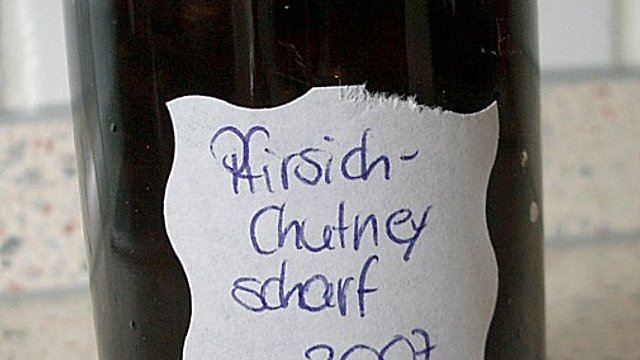 Pfirsich-
Chutney
scharf
2007